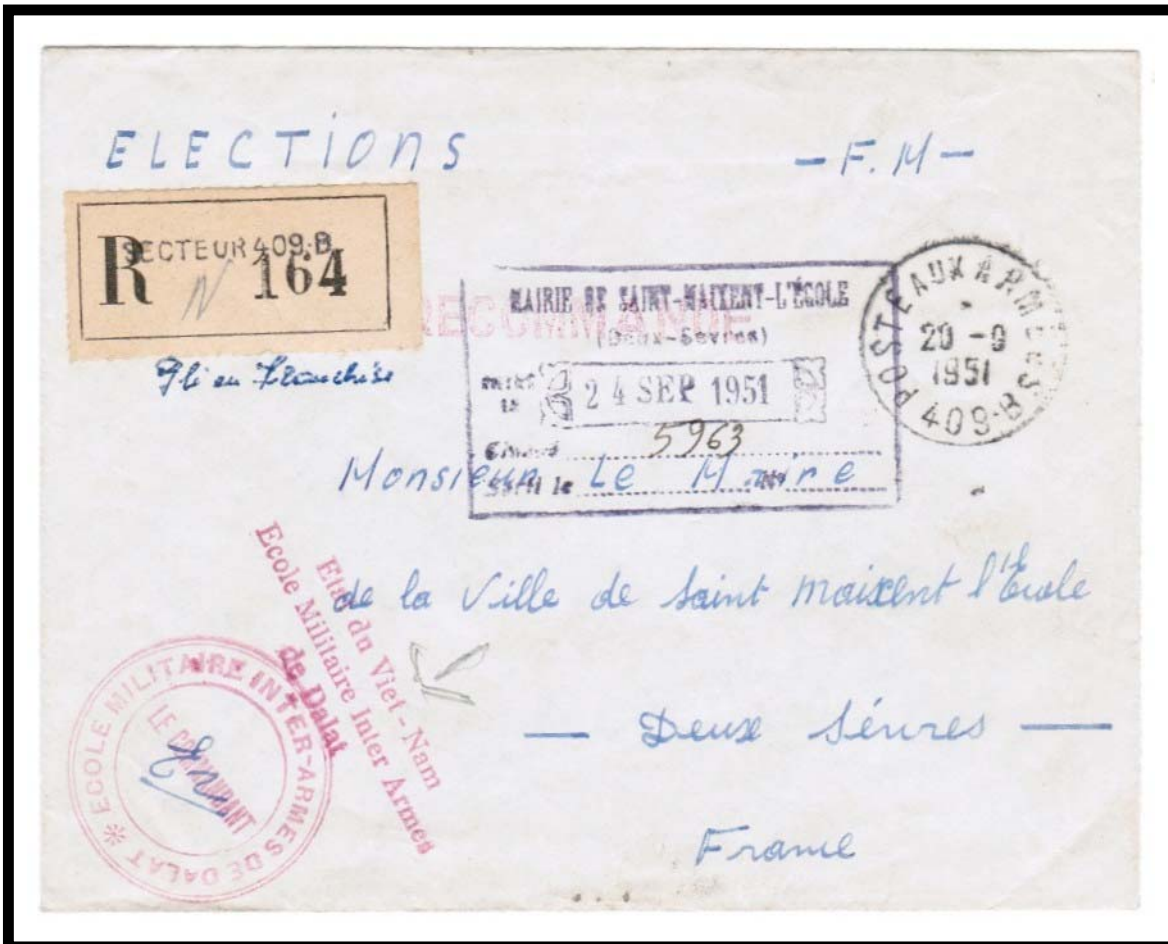 ELECTIONS
- F. M -
SECTEUR 409·B
R N 164
RECOMMANDÉ
Pli en Franchise
MAIRIE DE SAINT-MAIXENT-L'ÉCOLE
(Deux-Sèvres)
le
24 SEP 1951
5963
Sorti le
POSTE AUX ARMEES
20 -9
1951
409·B
Monsieur Le Maire
de la Ville de Saint Maixent l'École
— Deux Sévres —
France
Etat du Viet-Nam
Ecole Militaire Inter Armes
de Dalat
ECOLE MILITAIRE INTER-ARMES DE DALAT
LE COMMANDANT